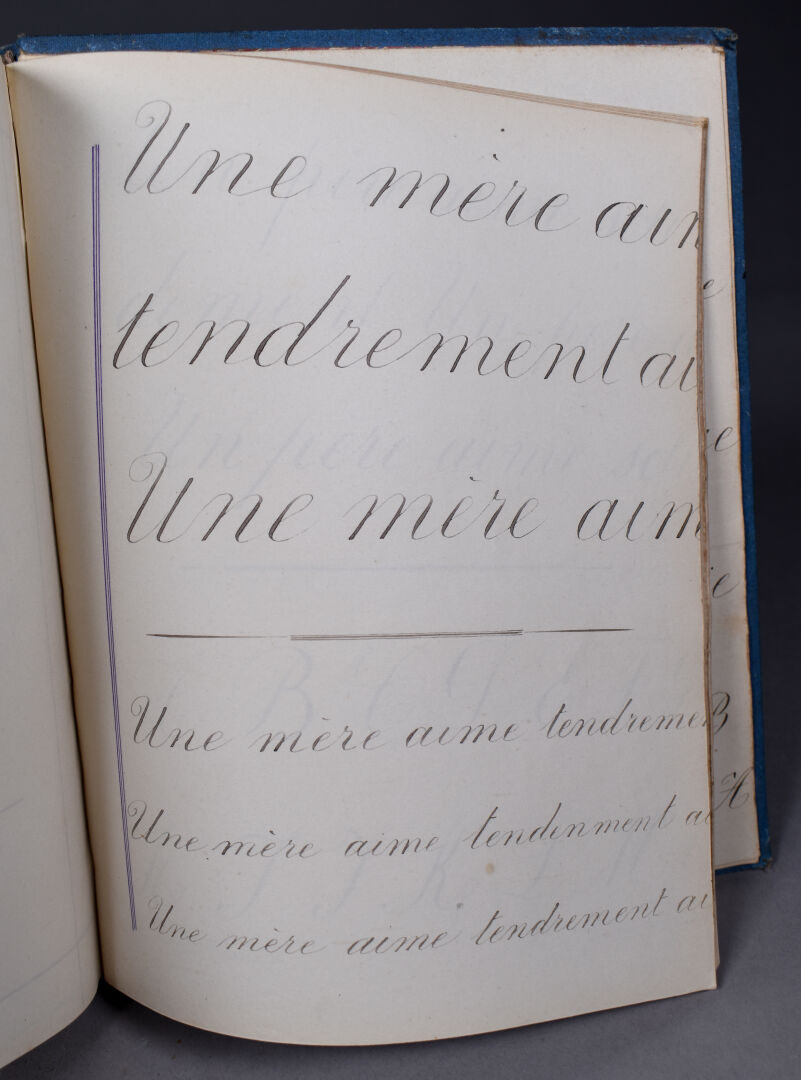 Une mère aim
tendrement ai
Une mère aim
Une mère aime tendreme
Une mère aime tendinment ai
Une mère aime tendrement ai